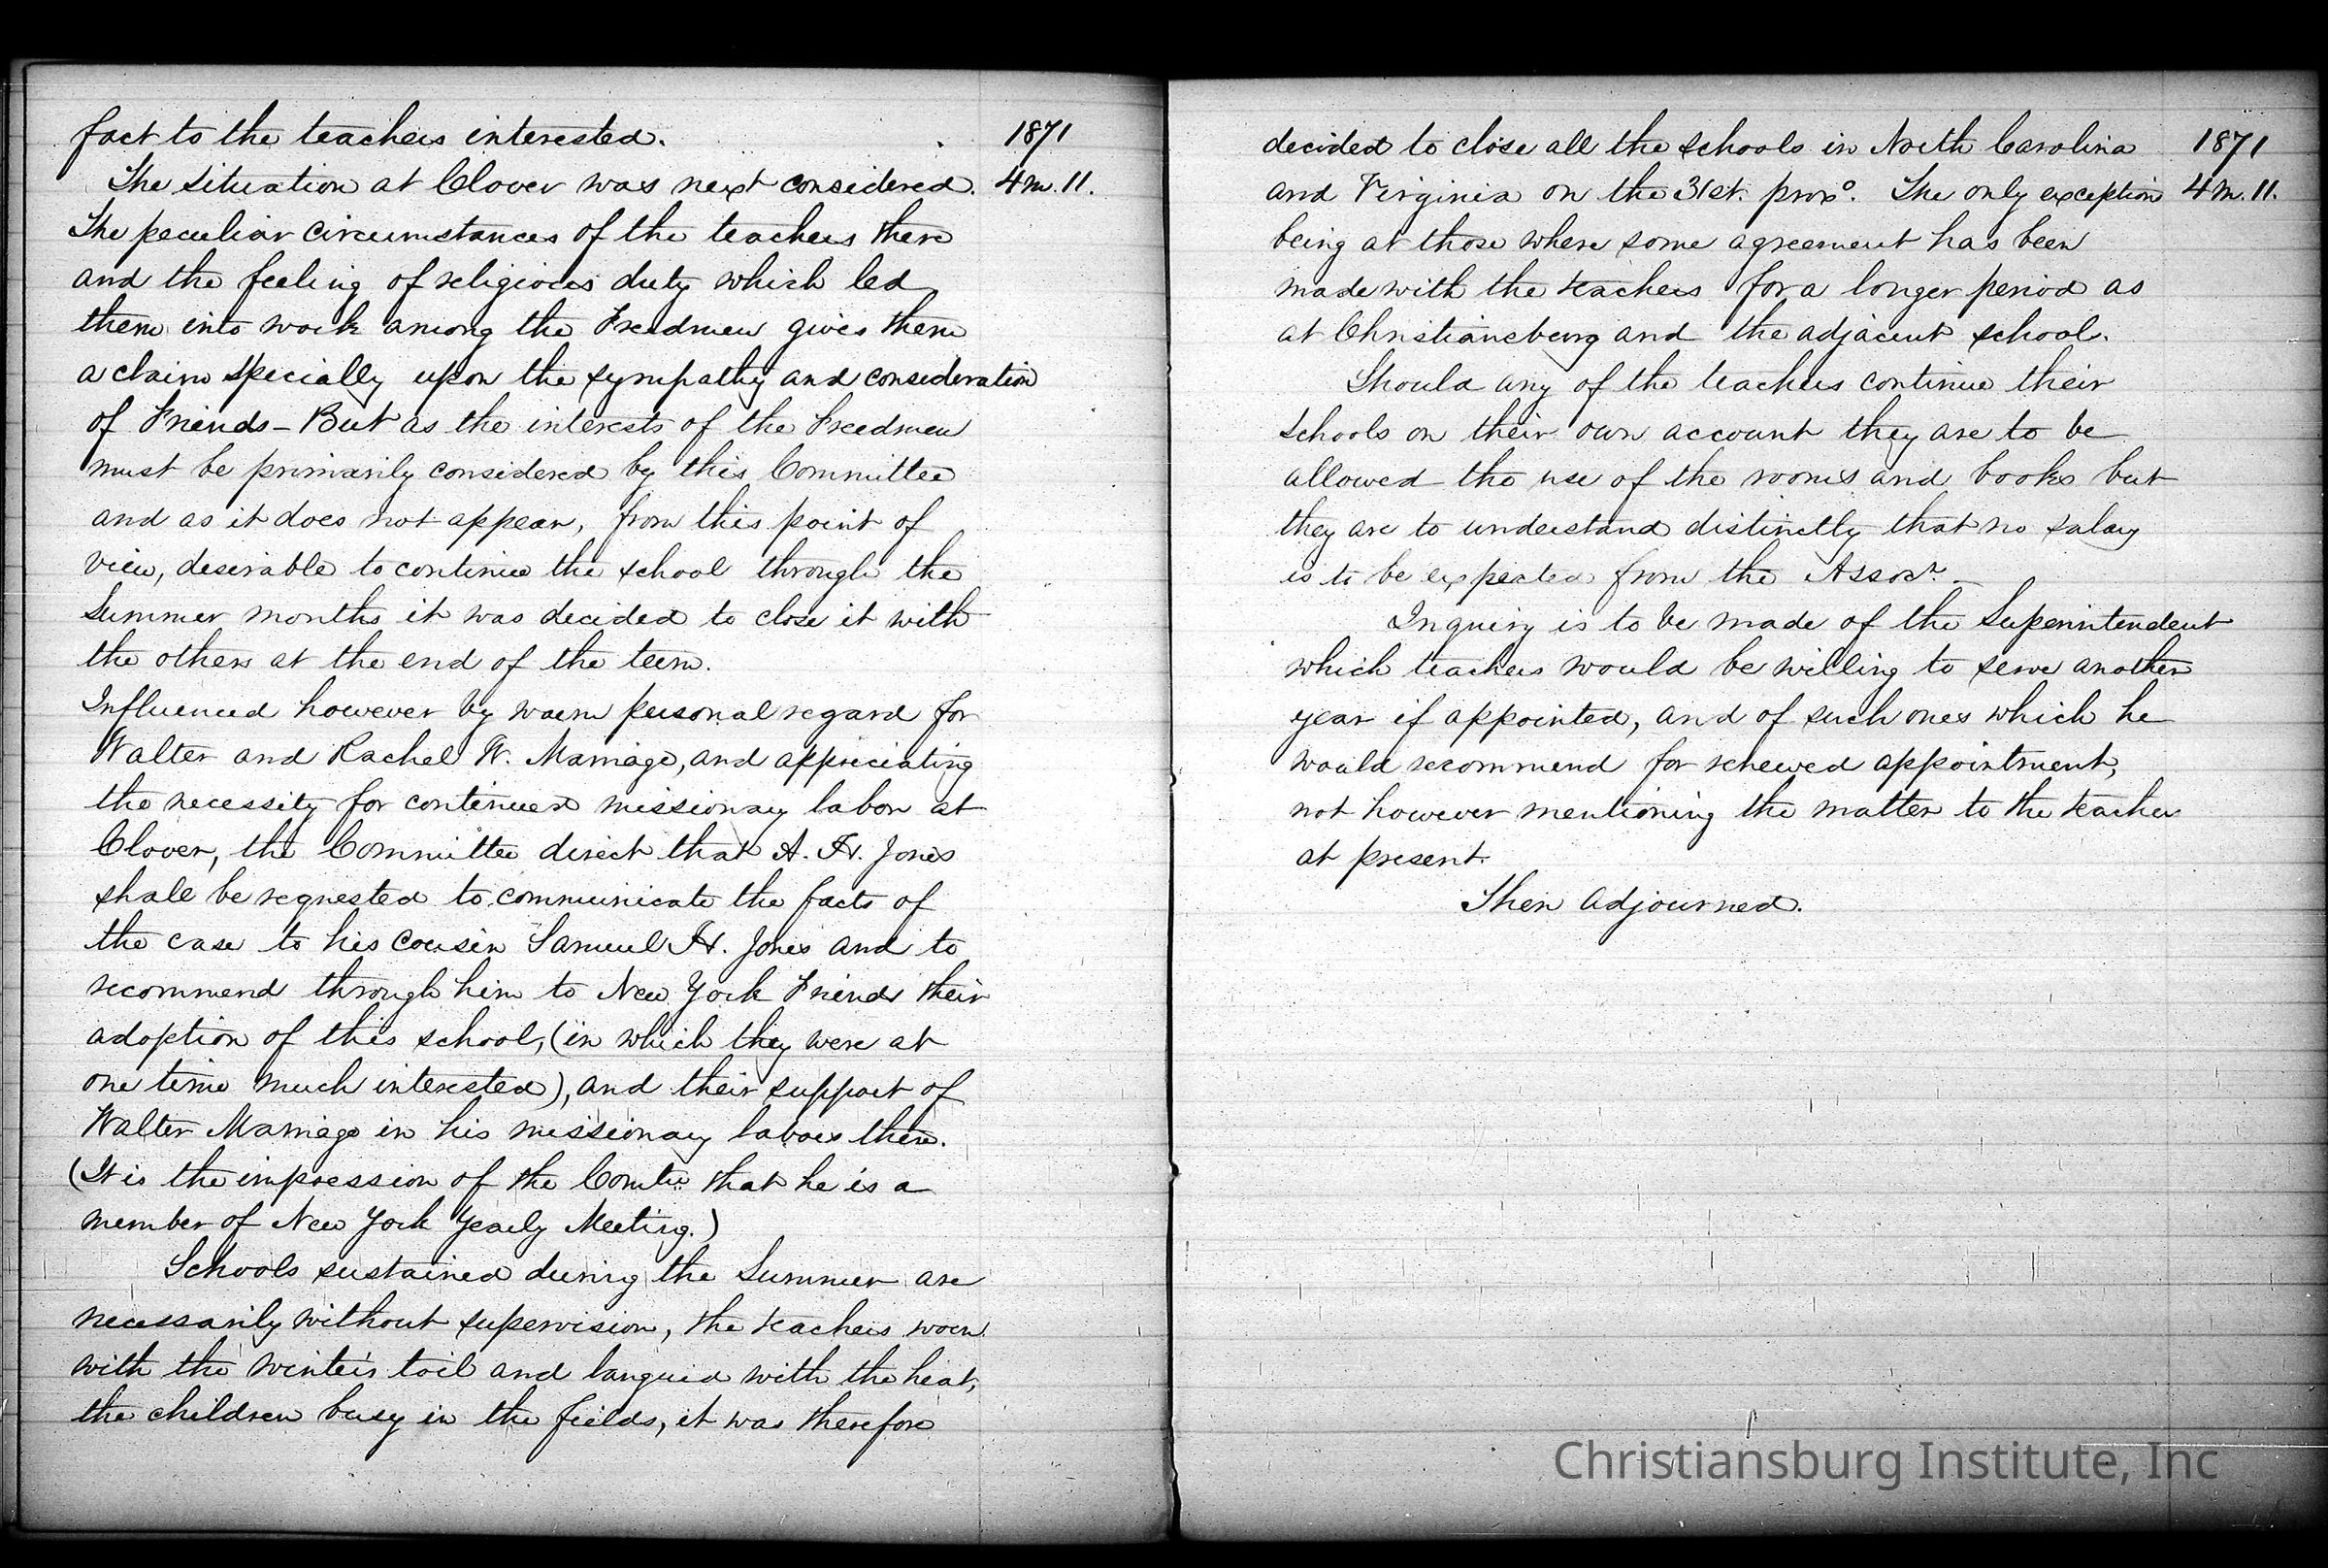 fact to the teachers interested. 1871
The situation at Clover was next considered. 4 m. 11.
The peculiar circumstances of the teachers there
and the feeling of religious duty which led
them into work among the Freedmen gives them
a claim specially upon the sympathy and consideration
of Friends – But as the interests of the Freedmen
must be primarily considered by this Committee
and as it does not appear, from this point of
view, desirable to continue the school through the
Summer months it was decided to close it with
the others at the end of the term.
Influenced however by warm personal regard for
Walter and Rachel W. Marriage, and appreciating
the necessity for continued missionary labor at
Clover, the Committee direct that A. H. Jones
shall be requested to communicate the facts of
the case to his cousin Samuel H. Jones and to
recommend through him to New York Friends their
adoption of this school, (in which they were at
one time much interested), and their support of
Walter Marriage in his missionary labors there.
(It is the impression of the Comtee that he is a
member of New York Yearly Meeting.)
Schools sustained during the Summer are
necessarily without supervision, the teachers worn
with the winter's toil and languid with the heat,
the children busy in the fields, it was therefore
decided to close all the schools in North Carolina 1871
and Virginia on the 31st. proxo. The only exception 4 m. 11.
being at those where some agreement has been
made with the teachers for a longer period as
at Christiansburg and the adjacent school.
Should any of the teachers continue their
schools on their own account they are to be
allowed the use of the rooms and books but
they are to understand distinctly that no salary
is to be expected from the Assocn. –
Inquiry is to be made of the Superintendent
which teachers would be willing to serve another
year if appointed, and of such ones which he
would recommend for renewed appointment,
not however mentioning the matter to the teacher
at present.
Then adjourned.
Christiansburg Institute, Inc